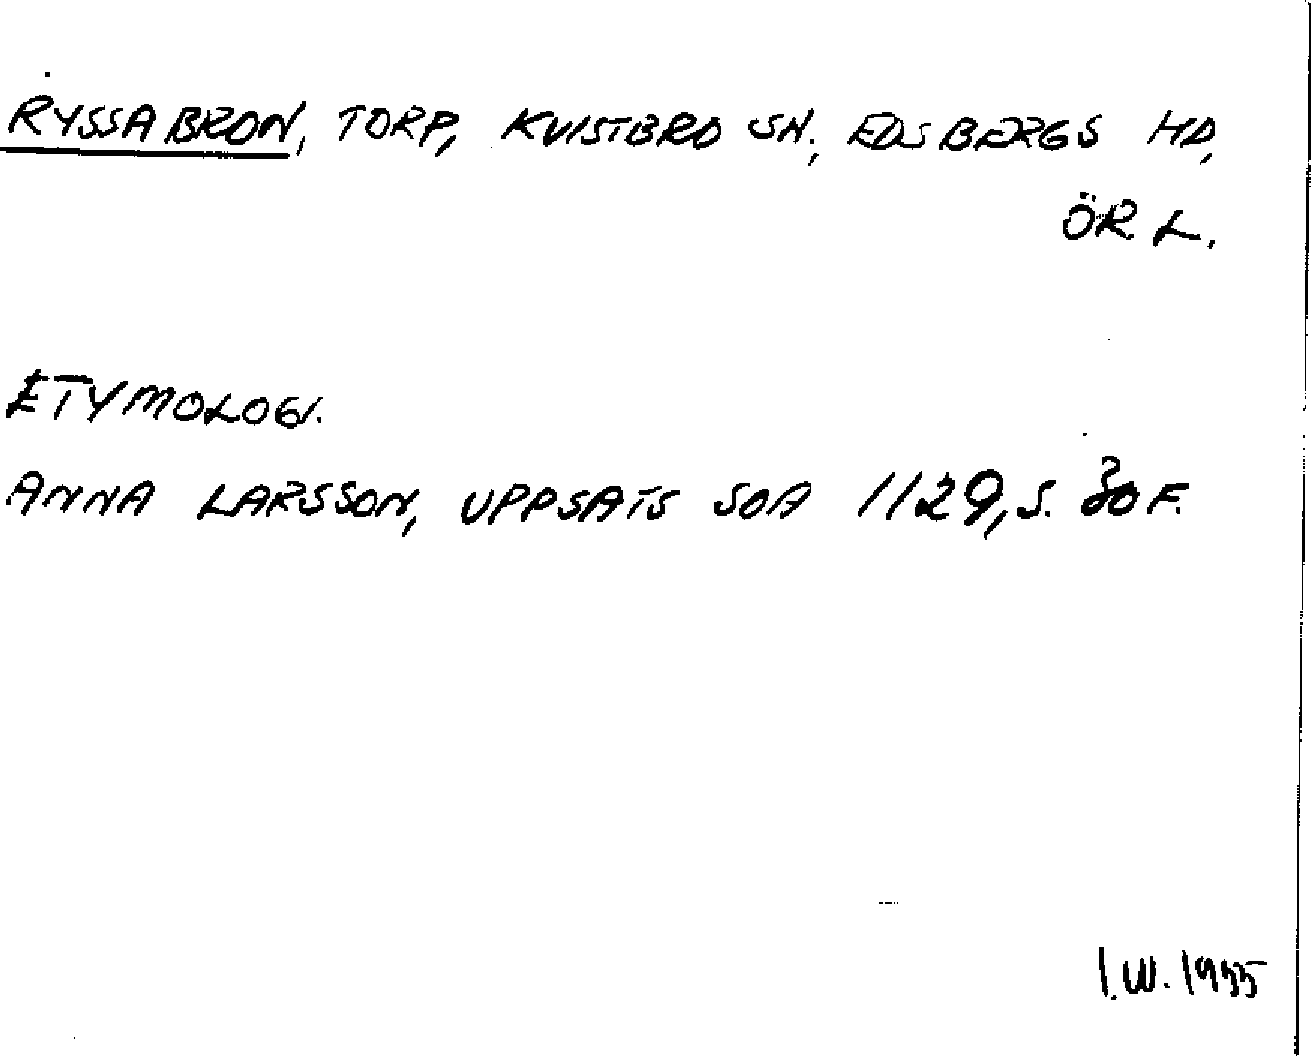 RYSSABRON, TORP, KVISTBRO SN., EDSBERGS HD,
ÖR. L.
ETYMOLOGI.
ANNA LARSSON, UPPSATS SOA 1129, S. 30 F.
I.W. 1955